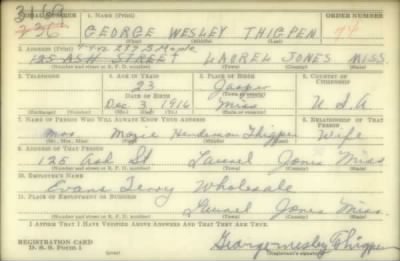 3169
SERIAL NUMBER 1. NAME (Print) ORDER NUMBER
236 GEORGE WESLEY THIGPEN 74
(First) (Middle) (Last)
2. ADDRESS (Print) Maple
125 ASH STREET LAUREL JONES MISS.
(Number and street or R. F. D. number) (Town) (County) (State)
3. TELEPHONE 4. AGE IN YEARS 5. PLACE OF BIRTH 6. COUNTRY OF CITIZENSHIP
23 Jasper
DATE OF BIRTH (Town or county)
Dec. 3, 1916 Miss U.S.A
(Exchange) (Number) (Mo.) (Day) (Yr.) (State or country)
7. NAME OF PERSON WHO WILL ALWAYS KNOW YOUR ADDRESS 8. RELATIONSHIP OF THAT PERSON
Mrs Henderson Thigpen Wife
(Mr., Mrs., Miss) (First) (Middle) (Last)
9. ADDRESS OF THAT PERSON
125 Ash St Laurel Jones Miss
(Number and street or R. F. D. number) (Town) (County) (State)
10. EMPLOYER'S NAME
Evans Terry Wholesale
11. PLACE OF EMPLOYMENT OR BUSINESS
Laurel Jones Miss.
(Number and street or R. F. D. number) (Town) (County) (State)
I AFFIRM THAT I HAVE VERIFIED ABOVE ANSWERS AND THAT THEY ARE TRUE.
REGISTRATION CARD
D. S. S. Form 1 George Wesley Thigpen
(Registrant's signature)